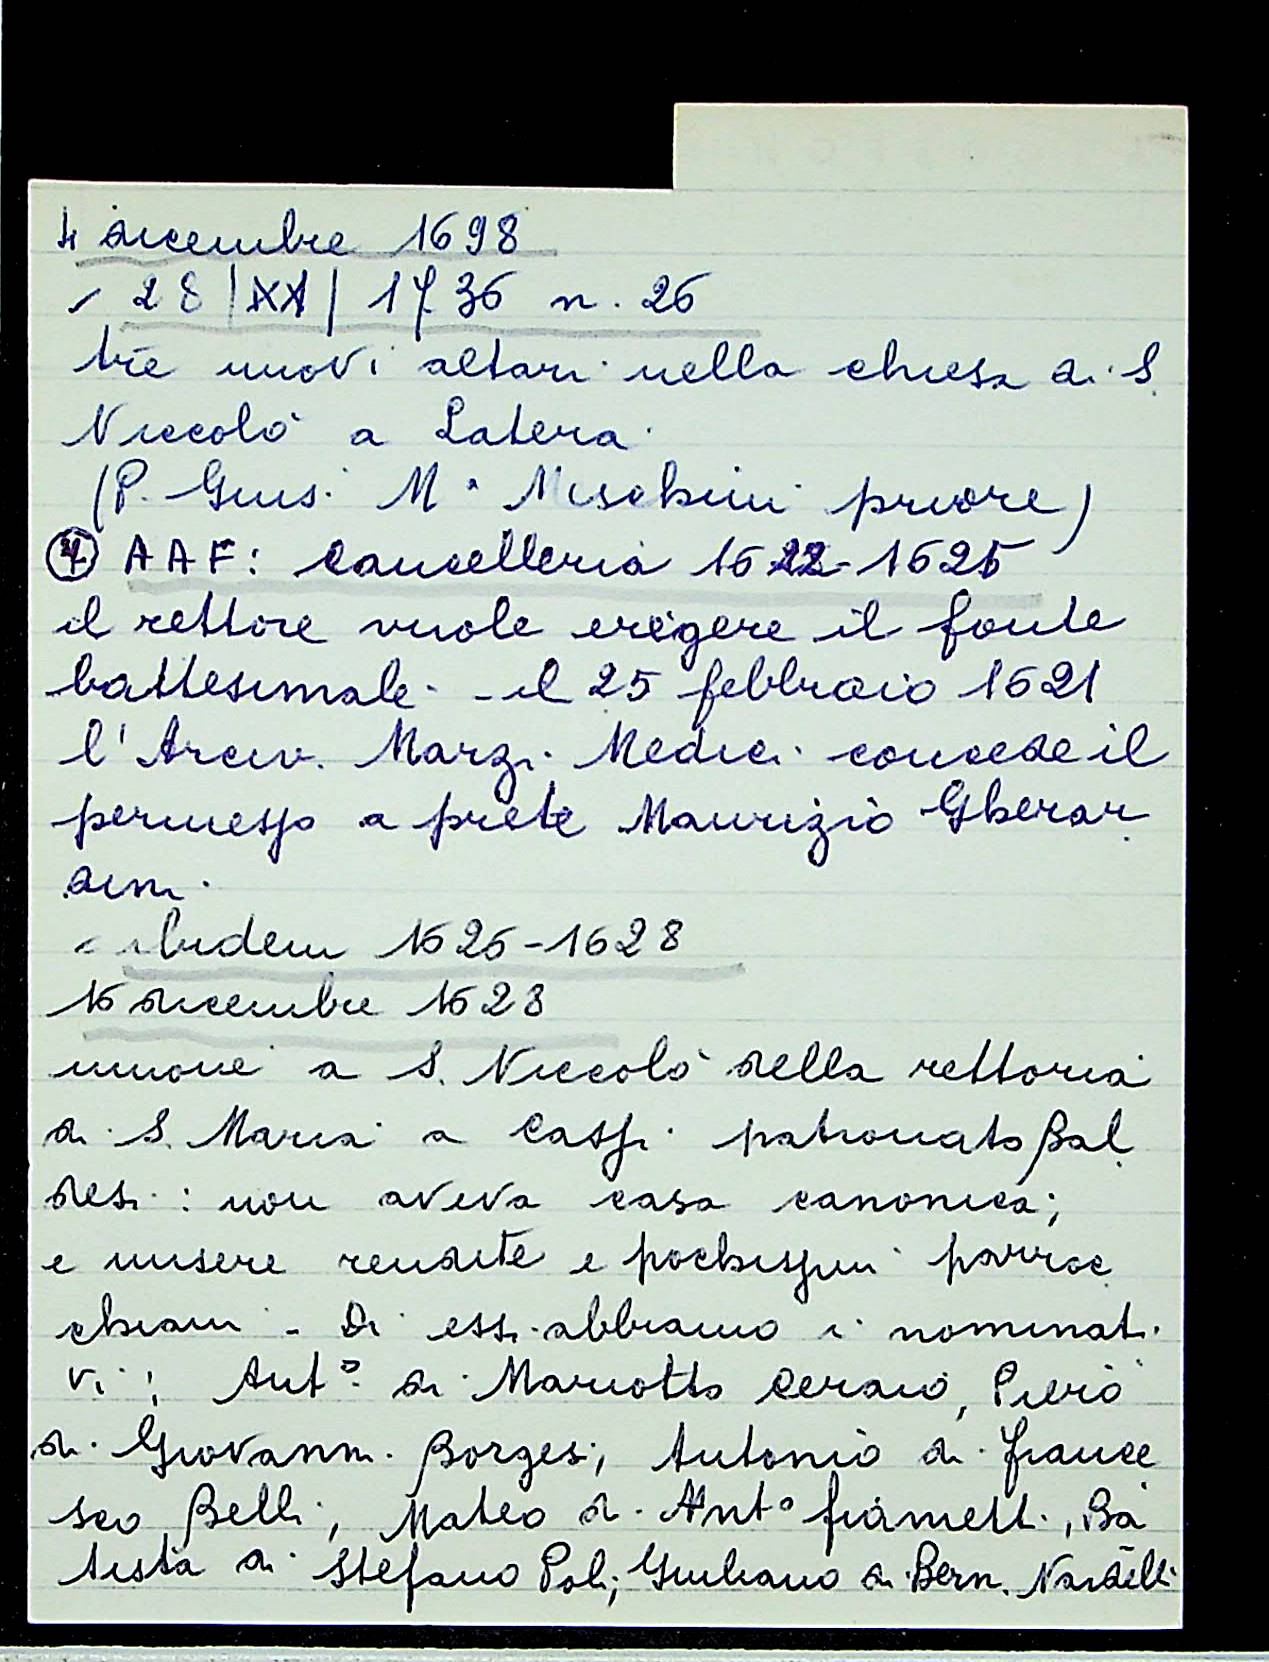 4 dicembre 1698
28 |XX| 1736 n. 26
tre nuovi altari nella chiesa di S.
Niccolò a Latera
(P. Gius. Mª Meschini priore)
④ AAF: Cancelleria 1622-1625
il rettore vuole erigere il fonte
battesimale - il 25 febbraio 1621
l'Arciv. Marzi Medici concede il
permesso a prete Maurizio Gherar
dini.
ibidem 1625-1628
16 dicembre 1628
unione a S. Niccolò della rettoria
di S. Maria a Cassi patronato Bal
desi : non aveva casa canonica;
e misere rendite e pochissimi parroc
chiani - Di essi abbiamo i nominati
vi: Antº di Mariotto Ceraio, Piero
di Giovanni Borgesi, Antonio di France
sco Belli, Mateo di Antº fiametti, Ba
tista di Stefano Poli, Giuliano di Bern. Nardelli